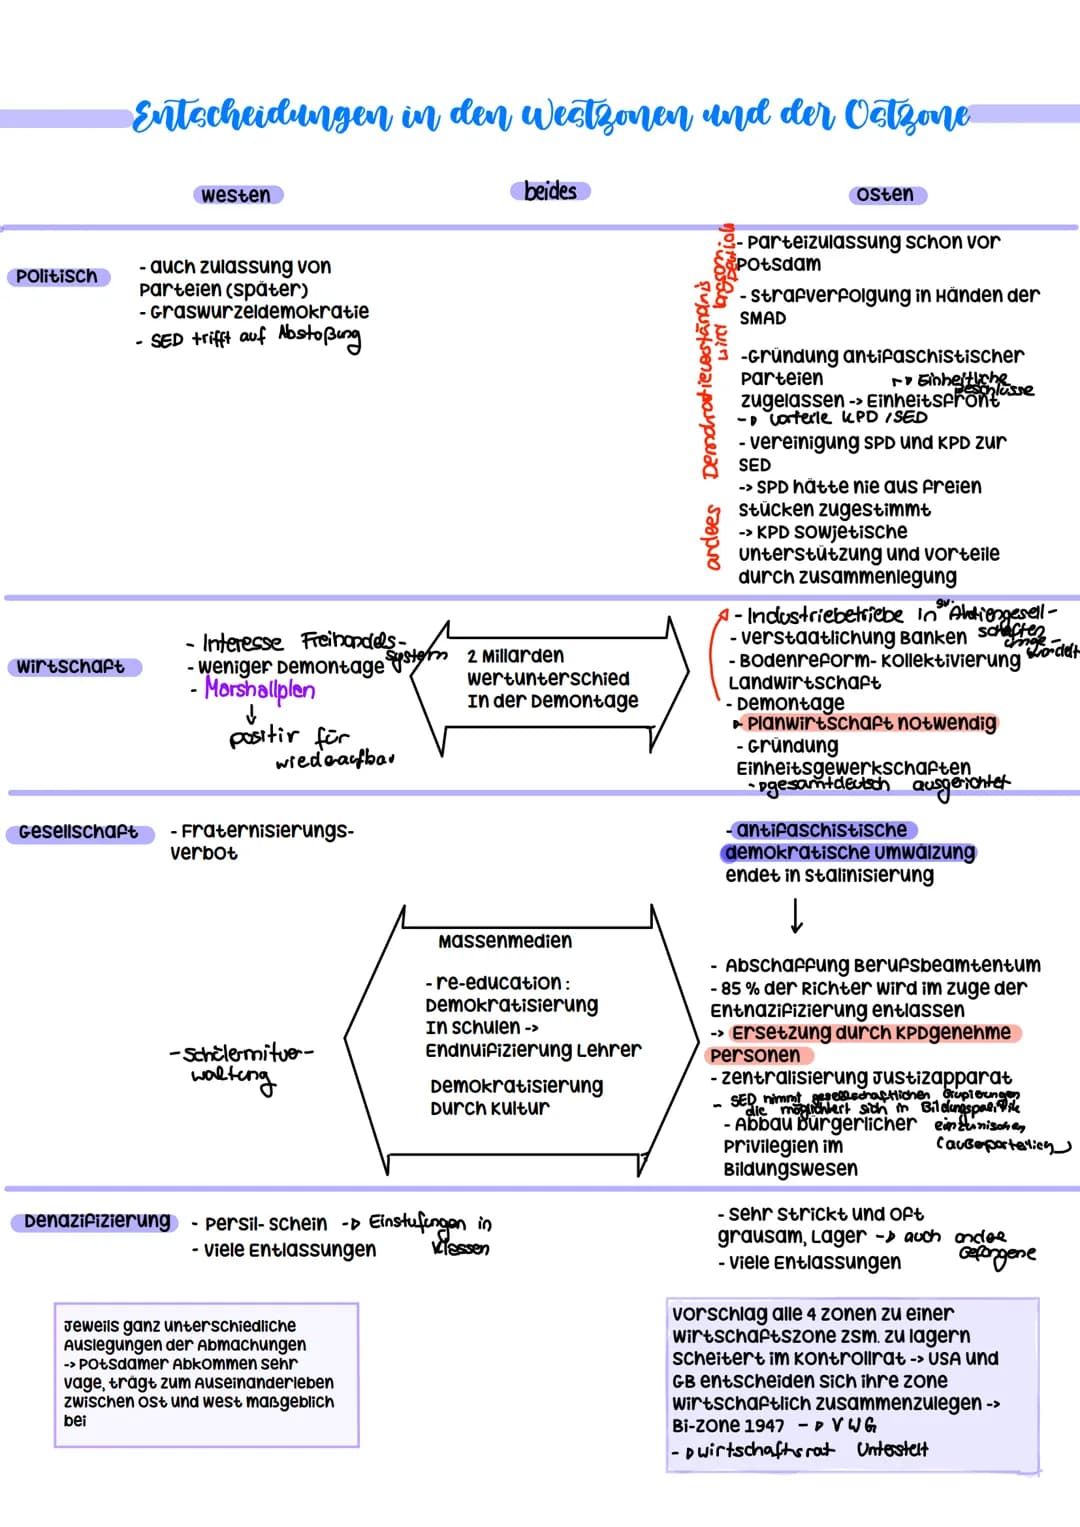 Entscheidungen in den Westzonen und der Ostzone
westen
beides
osten
Politisch
- auch zulassung von
Parteien (später)
- Graswurzeldemokratie
- SED trifft auf Abstoßung
anderes Demokratieverständnis
wird langsam deutlich
- Parteizulassung schon vor
Potsdam
- Strafverfolgung in Händen der
SMAD
-Gründung antifaschistischer
Parteien
-> Einheitliche
Beschlüsse
zugelassen -> Einheitsfront
-> vorteile KPD / SED
- vereinigung SPD und KPD zur
SED
-> SPD hätte nie aus freien
Stücken zugestimmt
-> KPD sowjetische
unterstützung und vorteile
durch zusammenlegung
Wirtschaft
- Interesse Freihandels-
system
- weniger Demontage
- Marshallplan
↓
positiv für
wiederaufbau
2 Millarden
wertunterschied
In der Demontage
- Industriebetriebe in sw. Aktiengesell-
schaften
umge
wandelt
- verstaatlichung Banken
- Bodenreform- Kollektivierung
Landwirtschaft
- Demontage
Planwirtschaft notwendig
- Gründung
Einheitsgewerkschaften
-> gesamtdeutsch ausgerichtet
Gesellschaft
- Fraternisierungs-
verbot
-Schülermitver-
waltung
Massenmedien
- re-education :
Demokratisierung
In Schulen ->
Endnuifizierung Lehrer
Demokratisierung
Durch Kultur
- antifaschistische
demokratische umwälzung
endet in stalinisierung
↓
- Abschaffung Berufsbeamtentum
- 85 % der Richter wird im zuge der
Entnazifizierung entlassen
-> Ersetzung durch KPDgenehme
Personen
- zentralisierung Justizapparat
- SED nimmt gesellschaftlichen Gruppierungen
die möglichkeit sich in Bildungspolitik
einzumischen
(außerparteilich)
- Abbau bürgerlicher
Privilegien im
Bildungswesen
Denazifizierung
- Persil- schein -> Einstufungen in
Klassen
- viele Entlassungen
- sehr strickt und oft
grausam, Lager -> auch andere
Gefangene
- viele Entlassungen
Jeweils ganz unterschiedliche
Auslegungen der Abmachungen
-> Potsdamer Abkommen sehr
vage, trägt zum Auseinanderleben
zwischen Ost und West maßgeblich
bei
vorschlag alle 4 zonen zu einer
wirtschaftszone zsm. zu lagern
scheitert im Kontrollrat -> USA und
GB entscheiden sich ihre zone
wirtschaftlich zusammenzulegen ->
Bi-zone 1947 -> VWG
-> wirtschaftsrat Unterstellt